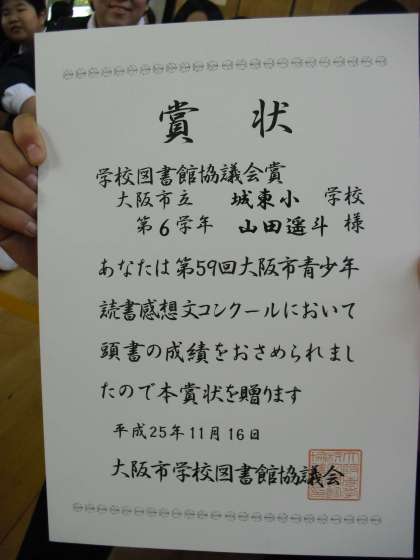 賞状
学校図書館協議会賞
大阪市立 城東小 学校
第6学年 山田遥斗 様
あなたは第59回大阪市青少年
読書感想文コンクールにおいて
頭書の成績をおさめられまし
たので本賞状を贈ります
平成25年11月16日
大阪市学校図書館協議会